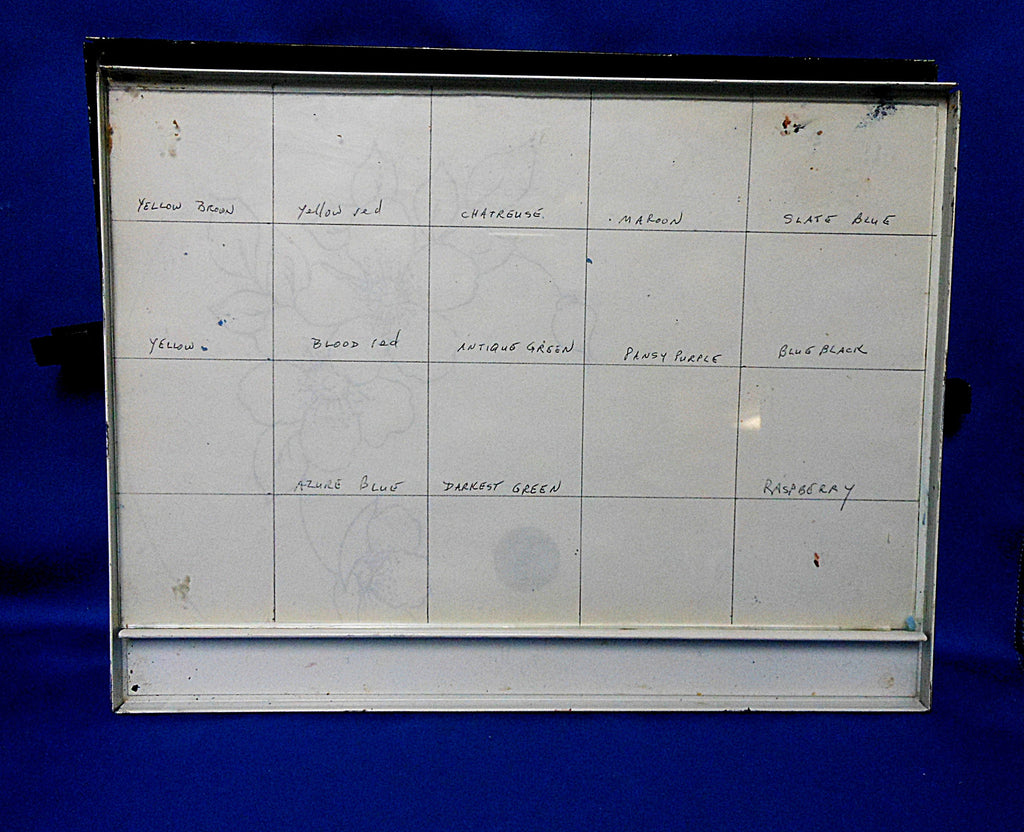 YELLOW BROWN
Yellow red
CHATREUSE
MAROON
SLATE BLUE
YELLOW
BLOOD red
ANTIQUE GREEN
PANSY PURPLE
BLUE BLACK
AZURE BLUE
DARKEST GREEN
RASPBERRY